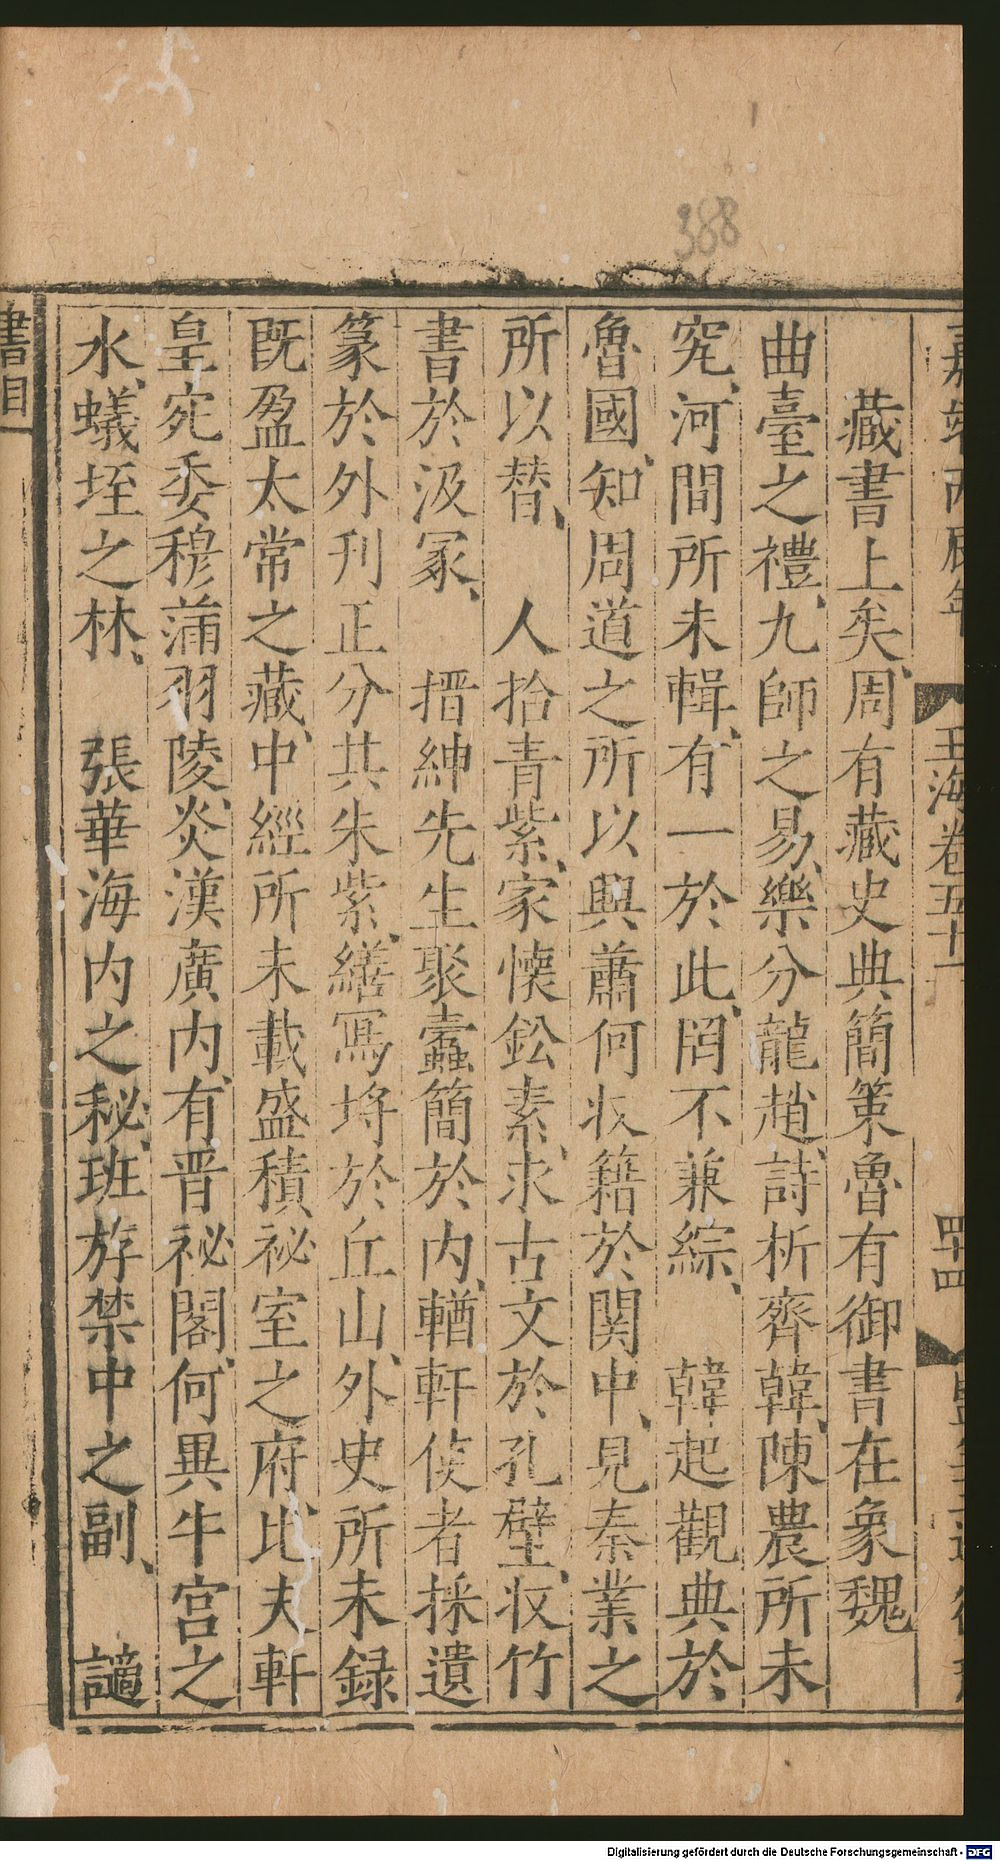 388
嘉靖丙辰年
玉海卷五十一
四十四
藏書上矣、周有藏史典簡策魯有御書在象魏
曲臺之禮、九師之易、樂分龍趙、詩析齊韓、陳農所未
究、河間所未輯、有一於此、罔不兼綜、 韓起觀典於
魯國、知周道之所以興蕭何收籍於関中、見秦業之
所以替、 人拾青紫、家懷鈆素、求古文於孔壁、収竹
書於汲冢、 搢紳先生聚蠹簡於内、輶軒使者採遺
篆於外刋正分共朱紫、繕冩埒於丘山、外史所未録
既盈太常之藏、中經所未載盛積祕室之府、比夫軒
皇宛委穆滿羽陵、炎漢廣内、有晋祕閣、何異牛宫之
水、蟻垤之林、 張華海内之秘、班斿禁中之副、 謫
書目
Digitalisierung gefördert durch die Deutsche Forschungsgemeinschaft - DFG